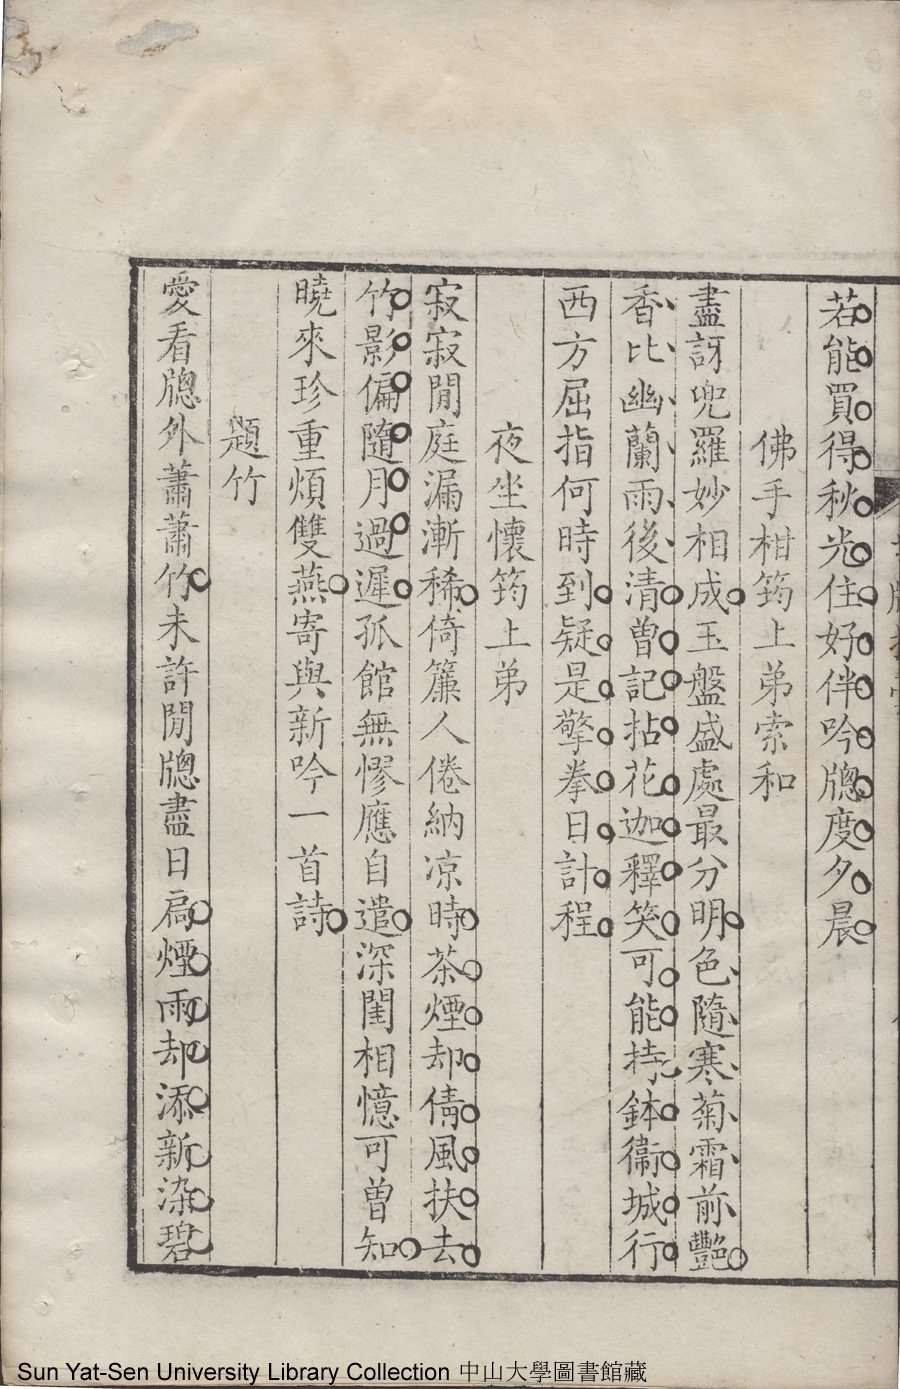 若能買得秋光住好伴吟牕度夕晨
佛手柑筠上弟索和
盡訝兜羅妙相成玉盤盛處最分明色隨寒菊霜前艷
香比幽蘭雨後清曾記拈花迦釋笑可能持鉢衞城行
西方屈指何時到疑是擎拳日計程
夜坐懷筠上弟
寂寂閒庭漏漸稀倚簾人倦納凉時茶煙却倩風扶去
竹影偏隨月過遲孤館無憀應自遣深閨相憶可曾知
曉來珍重煩雙燕寄與新吟一首詩
題竹
愛看牕外蕭蕭竹未許閒牕盡日扃煙雨却添新染碧
Sun Yat-Sen University Library Collection 中山大學圖書館藏